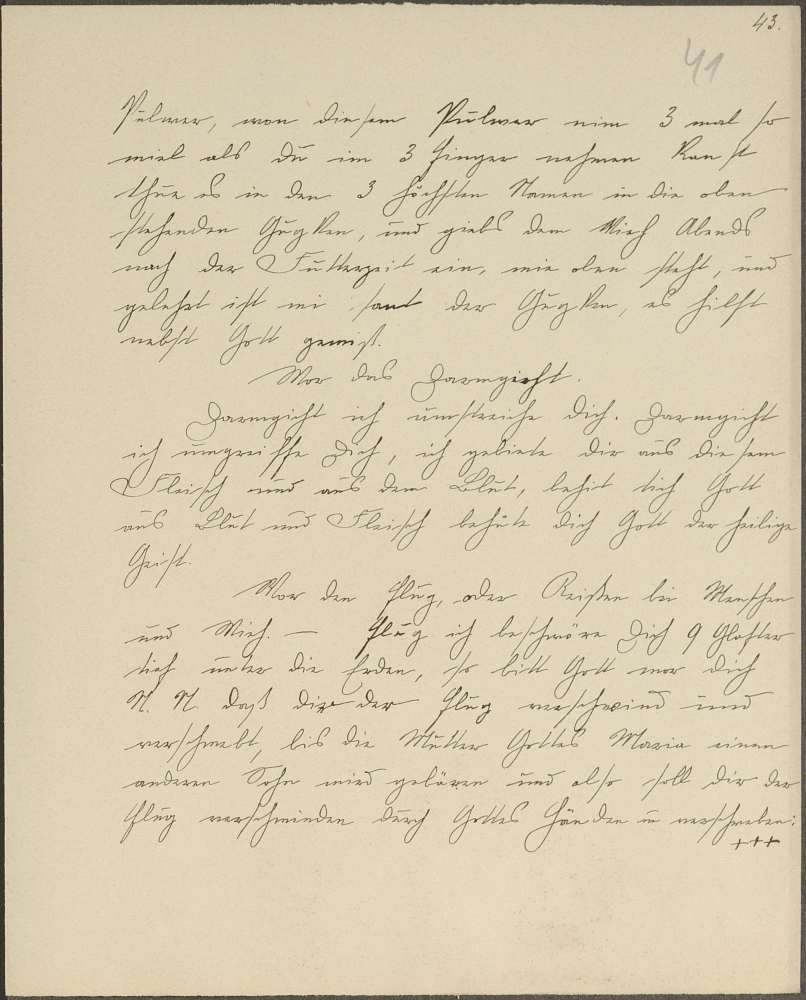 43.
41
Pulwer, von diesem Pulwer nim 3 mal so
viel als du in 3 Finger nehmen kanst
thue es in den 3 höchsten Namen in die oben
stehenden Gugken, und giebs dem Vieh Abends
nach der Futterzeit ein, wie oben steht, und
gelehrt ist mi samt der Gugken, es hilft
nebst Gott gewiß.
Vor das Darmgicht.
Darmgicht ich umstreiche dich. Darmgicht
ich umgreiffe Dich, ich gebiete dir aus diesem
Fleisch und aus dem Blut, behüt dich Gott
aus Blut und Fleisch behüte dich Gott der heilige
Geist.
Vor den Flug, oder Reißen bei Menschen
und Vieh. — Flug ich beschwöre Dich 9 Glofter
tief unter die Erden, so bitt Gott vor dich
N. N. daß dir der Flug verschwind und
verschwebt, bis die Mutter Gottes Maria einen
anderen Sohn wird gebären und also soll dir der
Flug verschwinden durch Gottes Händen u verschweben:
+++